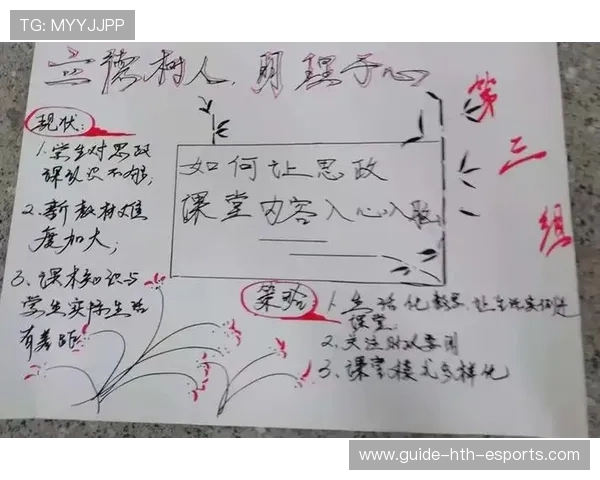 TG: MYYJJPP
立德树人,明理于心
第三组
现状:
1.学生对思政
课认识不够;
2.新教材难
度加大;
3.课本知识与
学生实际生活
有差距
如何让思政
课堂内容入心入脑
策略
1.生活化教学,让生活实例进
课堂
2.关注时政要闻
3.课堂模式多样化
www.guide-hth-esports.com